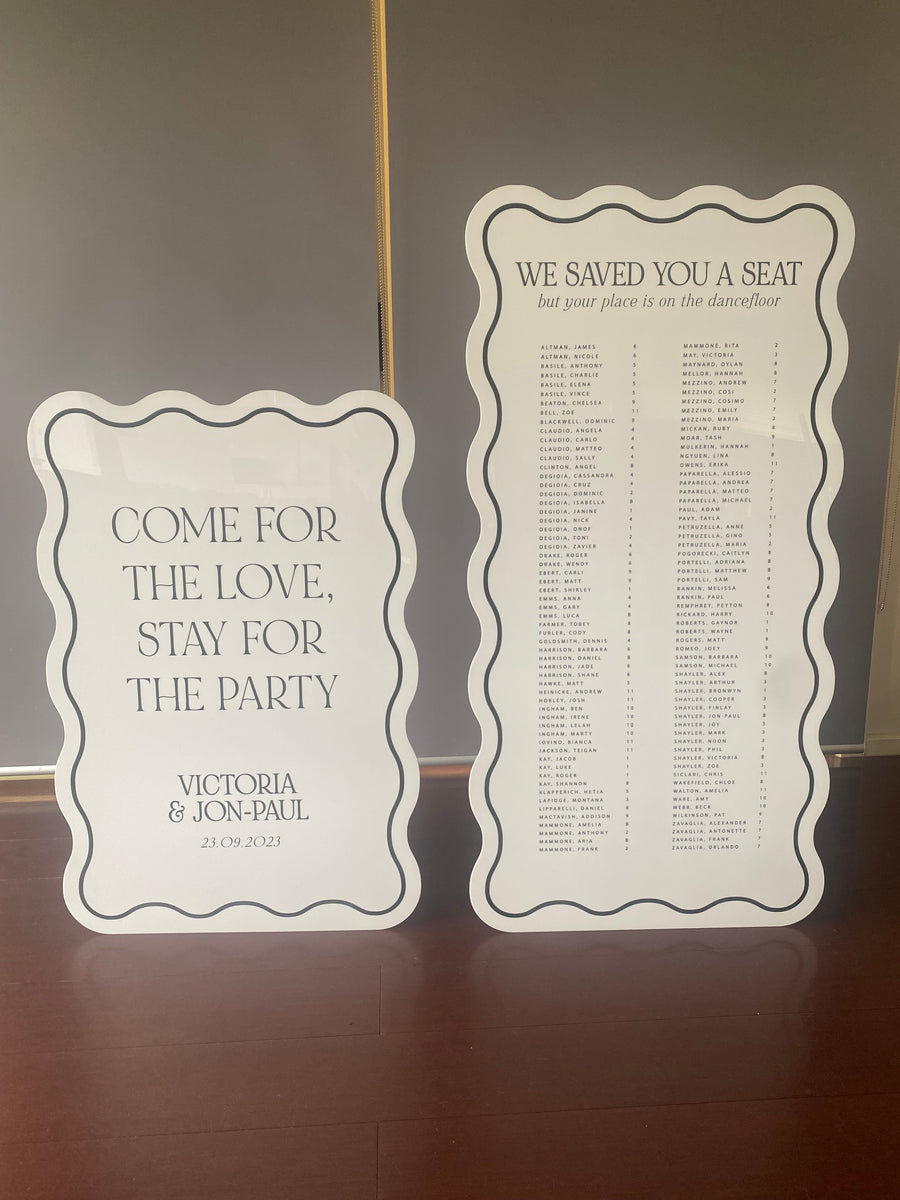 COME FOR
THE LOVE,
STAY FOR
THE PARTY
VICTORIA
& JON-PAUL
23.09.2023
WE SAVED YOU A SEAT
but your place is on the dancefloor
ALTMAN, JAMES 6
ALTMAN, NICOLE 6
BASILE, ANTHONY 5
BASILE, CHARLIE 5
BASILE, ELENA 5
BASILE, VINCE 5
BEATON, CHELSEA 9
BELL, ZOE 11
BLACKWELL, DOMINIC 9
CLAUDIO, ANGELA 4
CLAUDIO, CARLO 4
CLAUDIO, MATTEO 4
CLAUDIO, SALLY 4
CLINTON, ANGEL 8
DEGIOIA, CASSANDRA 4
DEGIOIA, CRUZ 4
DEGIOIA, DOMINIC 2
DEGIOIA, ISABELLA 8
DEGIOIA, JANINE 1
DEGIOIA, NICK 4
DEGIOIA, ONOF 1
DEGIOIA, TONI 2
DEGIOIA, ZAVIER 4
DRAKE, ROGER 6
DRAKE, WENDY 6
EBERT, CARLI 9
EBERT, MATT 9
EBERT, SHIRLEY 1
EMMS, ANNA 4
EMMS, GARY 4
EMMS, LUCA 8
FARMER, TOBEY 8
FURLER, CODY 8
GOLDSMITH, DENNIS 4
HARRISON, BARBARA 6
HARRISON, DANIEL 8
HARRISON, JADE 6
HARRISON, SHANE 6
HAWKE, MATT 5
HEINICKE, ANDREW 11
HORLEY, JOSH 11
INGHAM, BEN 10
INGHAM, IRENE 10
INGHAM, LELAH 10
INGHAM, MARTY 10
IOVINO, BIANCA 11
JACKSON, TEIGAN 11
KAY, JACOB 1
KAY, LUKE 1
KAY, ROGER 1
KAY, SHANNON 8
KLAPPERICH, HETIA 5
LAPIDGE, MONTANA 3
LIPPARELLI, DANIEL 6
MACTAVISH, ADDISON 9
MAMMONE, AMELIA 8
MAMMONE, ANTHONY 2
MAMMONE, ARIA 8
MAMMONE, FRANK 2
MAMMONE, RITA 2
MAY, VICTORIA 3
MAYNARD, DYLAN 8
MELLOR, HANNAH 8
MEZZINO, ANDREW 7
MEZZINO, COSI 2
MEZZINO, COSIMO 7
MEZZINO, EMILY 7
MEZZINO, MARIA 2
MICKAN, RUBY 8
MOAR, TASH 9
MULKERIN, HANNAH 1
NGYUEN, LINA 8
OWENS, ERIKA 11
PAPARELLA, ALESSIO 7
PAPARELLA, ANDREA 7
PAPARELLA, MATTEO 7
PAPARELLA, MICHAEL 7
PAUL, ADAM 2
PAVY, TAYLA 11
PETRUZELLA, ANNE 5
PETRUZELLA, GINO 5
PETRUZELLA, MARIA 2
POGORECKI, CAITLYN 8
PORTELLI, ADRIANA 8
PORTELLI, MATTHEW 8
PORTELLI, SAM 9
RANKIN, MELISSA 6
RANKIN, PAUL 6
REMPHREY, PEYTON 8
RICKARD, HARRY 10
ROBERTS, GAYNOR 1
ROBERTS, WAYNE 1
ROGERS, MATT 9
ROMEO, JOEY 9
SAMSON, BARBARA 10
SAMSON, MICHAEL 10
SHAYLER, ALEX 8
SHAYLER, ARTHUR 3
SHAYLER, BRONWYN 1
SHAYLER, COOPER 3
SHAYLER, FINLAY 3
SHAYLER, JON-PAUL 8
SHAYLER, JOY 3
SHAYLER, MARK 3
SHAYLER, NOON 3
SHAYLER, PHIL 3
SHAYLER, VICTORIA 8
SHAYLER, ZOE 3
SICLARI, CHRIS 11
WAKEFIELD, CHLOE 8
WALTON, AMELIA 11
WARE, AMY 10
WEBB, BECK 10
WILKINSON, PAT 9
ZAVAGLIA, ALEXANDER 7
ZAVAGLIA, ANTONETTE 7
ZAVAGLIA, FRANK 7
ZAVAGLIA, ORLANDO 7